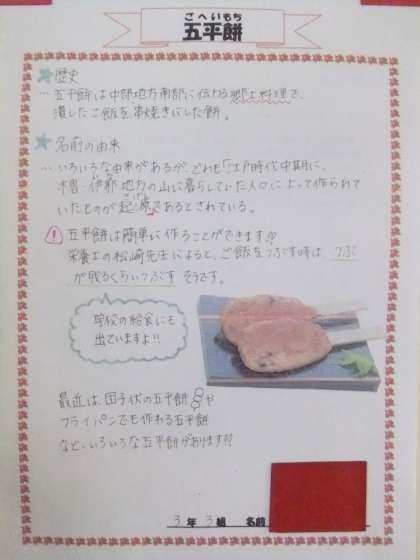 ごへいもち
五平餅
歴史
… 五平餅は中部地方南部に伝わる郷土料理で、
潰したご飯を串焼きにした餅。
名前の由来
… いろいろな由来があるが、どれも「江戸時代中期に、
木曽・伊那地方の山に暮らしていた人々によって作られて
いたものが起源であるとされている。
! 五平餅は簡単に作ることができます!!
栄養士の松崎先生によると、ご飯をつぶす時は、つぶ
が残るくらいつぶすそうです。
学校の給食にも
出ていますよ!!
最近は、団子状の五平餅や
フライパンでも作れる五平餅
など、いろいろな五平餅があります!!
3年3組 名前